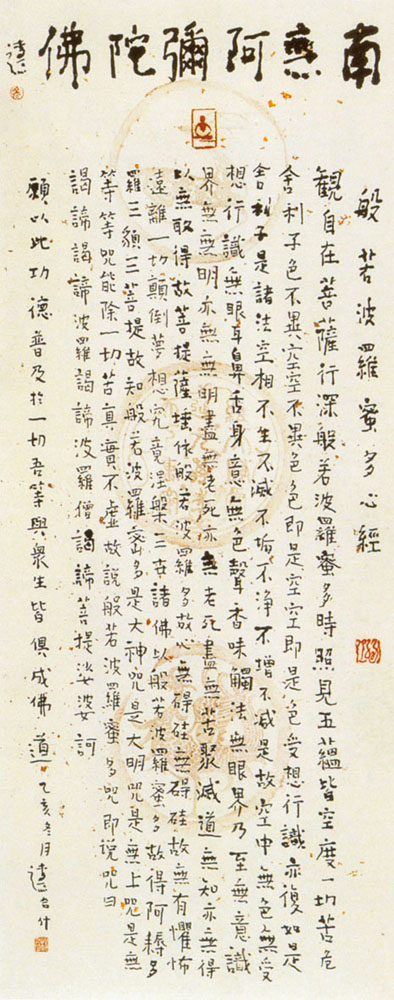 南無阿彌陀佛
般若波羅蜜多心經
觀自在菩薩行深般若波羅蜜多時照見五蘊皆空度一切苦厄
舍利子色不異空空不異色色即是空空即是色受想行識亦復如是
舍利子是諸法空相不生不滅不垢不淨不增不減是故空中無色無受
想行識無眼耳鼻舌身意無色聲香味觸法無眼界乃至無意識
界無無明亦無無明盡無老死亦無老死盡無苦聚滅道無知亦無得
以無敢得故菩提薩埵依般若波羅多故心無碍硅無碍硅故無有懼怖
遠離一切顛倒夢想究竟涅槃三世諸佛以般若波羅蜜多故得阿耨多
羅三藐三菩提故知般若波羅蜜多是大神咒是大明咒是無上咒是無
等等咒能除一切苦真實不虛故說般若波羅蜜多咒即說咒曰
謁諦謁諦波羅謁諦波羅僧謁諦菩提娑婆訶
願以此功德普及於一切吾等與眾生皆俱成佛道乙亥冬月